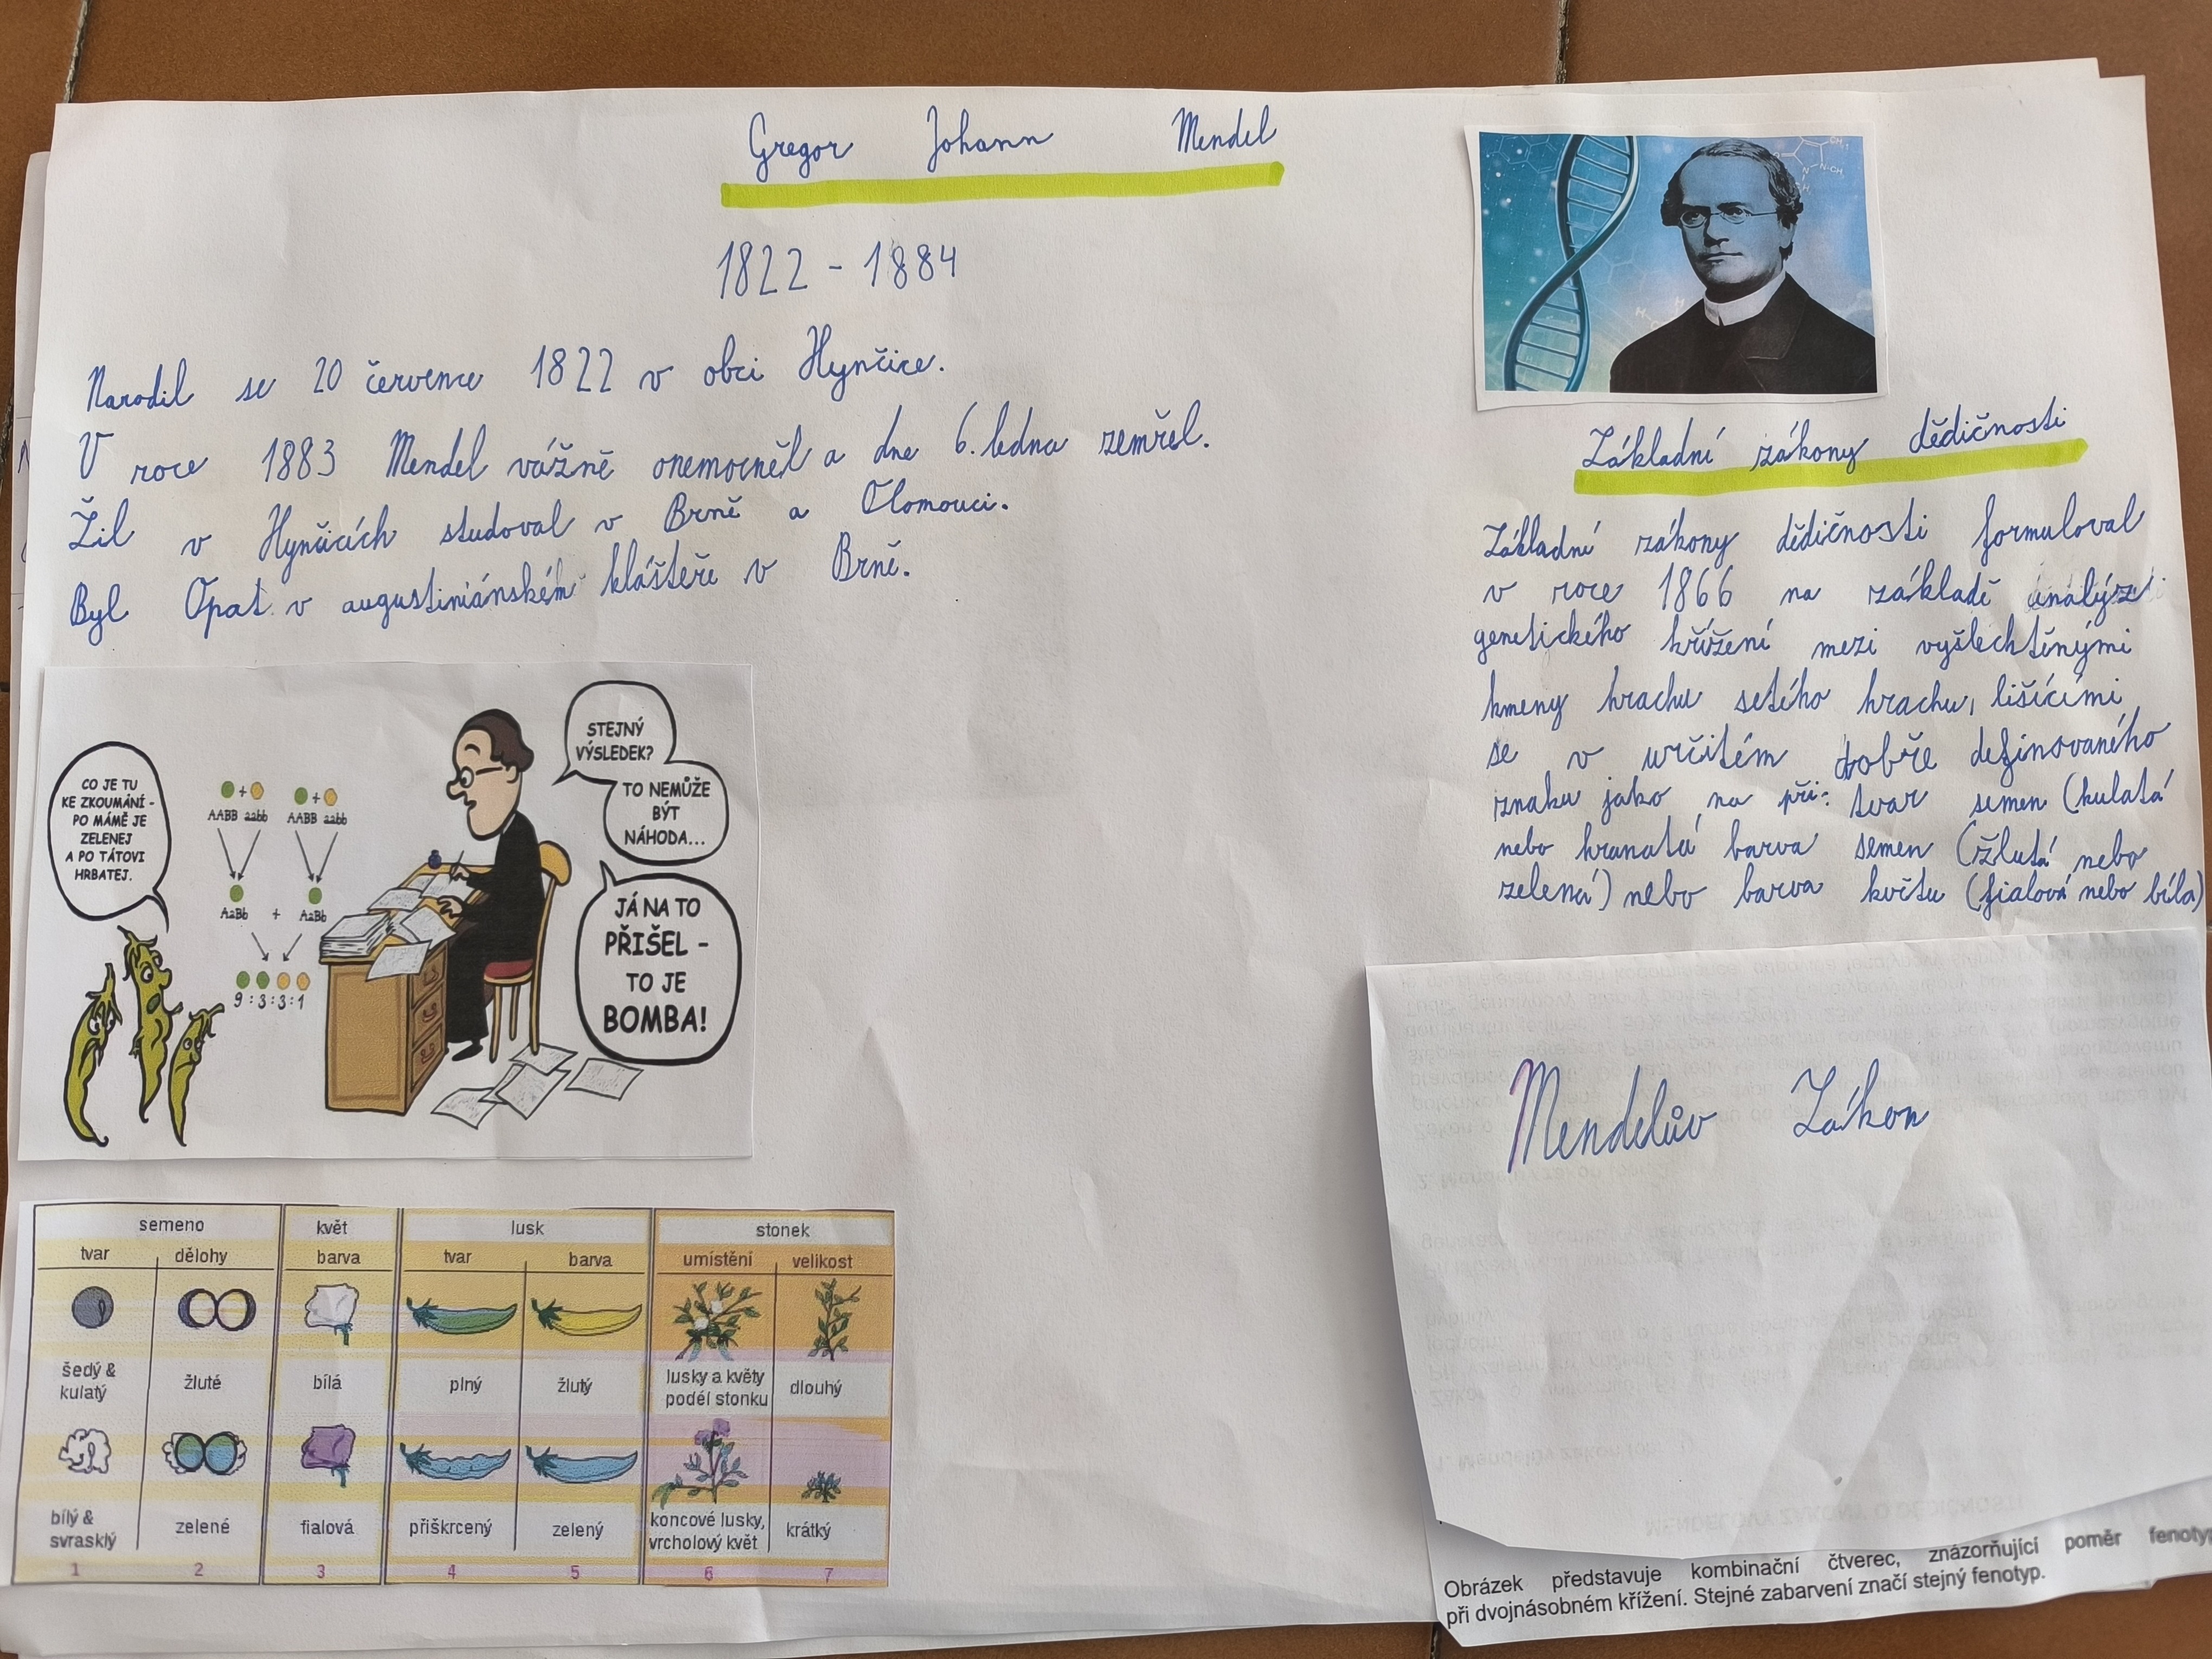 Gregor Johann Mendel
1822 - 1884
Narodil se 20 července 1822 v obci Hynčice.
V roce 1883 Mendel vážně onemocněl a dne 6. ledna zemřel.
Žil v Hynčicích studoval v Brně a Olomouci.
Byl Opat v augustiniánském klášteře v Brně.
Základní zákony dědičnosti
Základní zákony dědičnosti formuloval
v roce 1866 na základě
genetického křížení mezi vyšlechtěnými
kmeny hrachu setího hrachu, lišícími
se v určitém dobře definovaného
znaku jako na při: tvar semen (kulatá
nebo hranatá barva semen (žlutá nebo
zelená) nebo barva květu (fialová nebo bíla)
CO JE TU
KE ZKOUMÁNÍ -
PO MÁMĚ JE
ZELENEJ
A PO TÁTOVI
HRBATEJ.
+ +
AABB aabb AABB aabb
AaBb + AaBb
9:3:3:1
STEJNÝ
VÝSLEDEK?
TO NEMŮŽE
BÝT
NÁHODA...
JÁ NA TO
PŘIŠEL -
TO JE
BOMBA!
Mendelův Zákon
semeno květ lusk stonek
tvar dělohy barva tvar barva umístění velikost
šedý &
kulatý
žluté
bílá
plný
žlutý
lusky a květy
podél stonku
dlouhý
bílý &
svrasklý
zelené
fialová
přiškrcený
zelený
koncové lusky,
vrcholový květ
krátký
1 2 3 4 5 6 7
Obrázek představuje kombinační čtverec, znázorňující poměr
při dvojnásobném křížení. Stejné zabarvení značí stejný fenotyp.